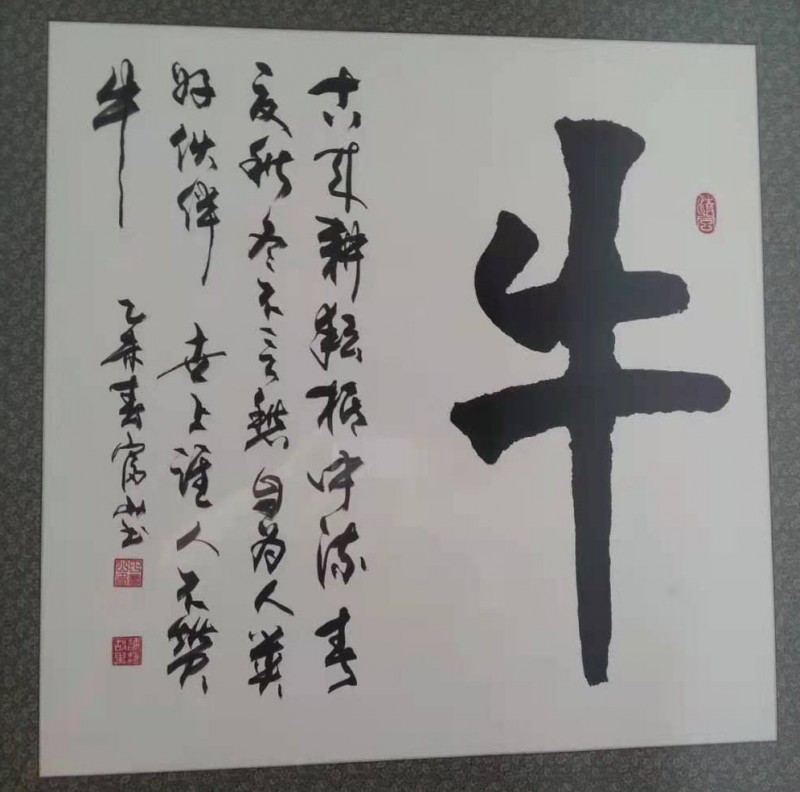 牛
古来耕耘中流春
夏秋冬不言愁自为人类
好伙伴世上谁人不赞
牛
乙未春书